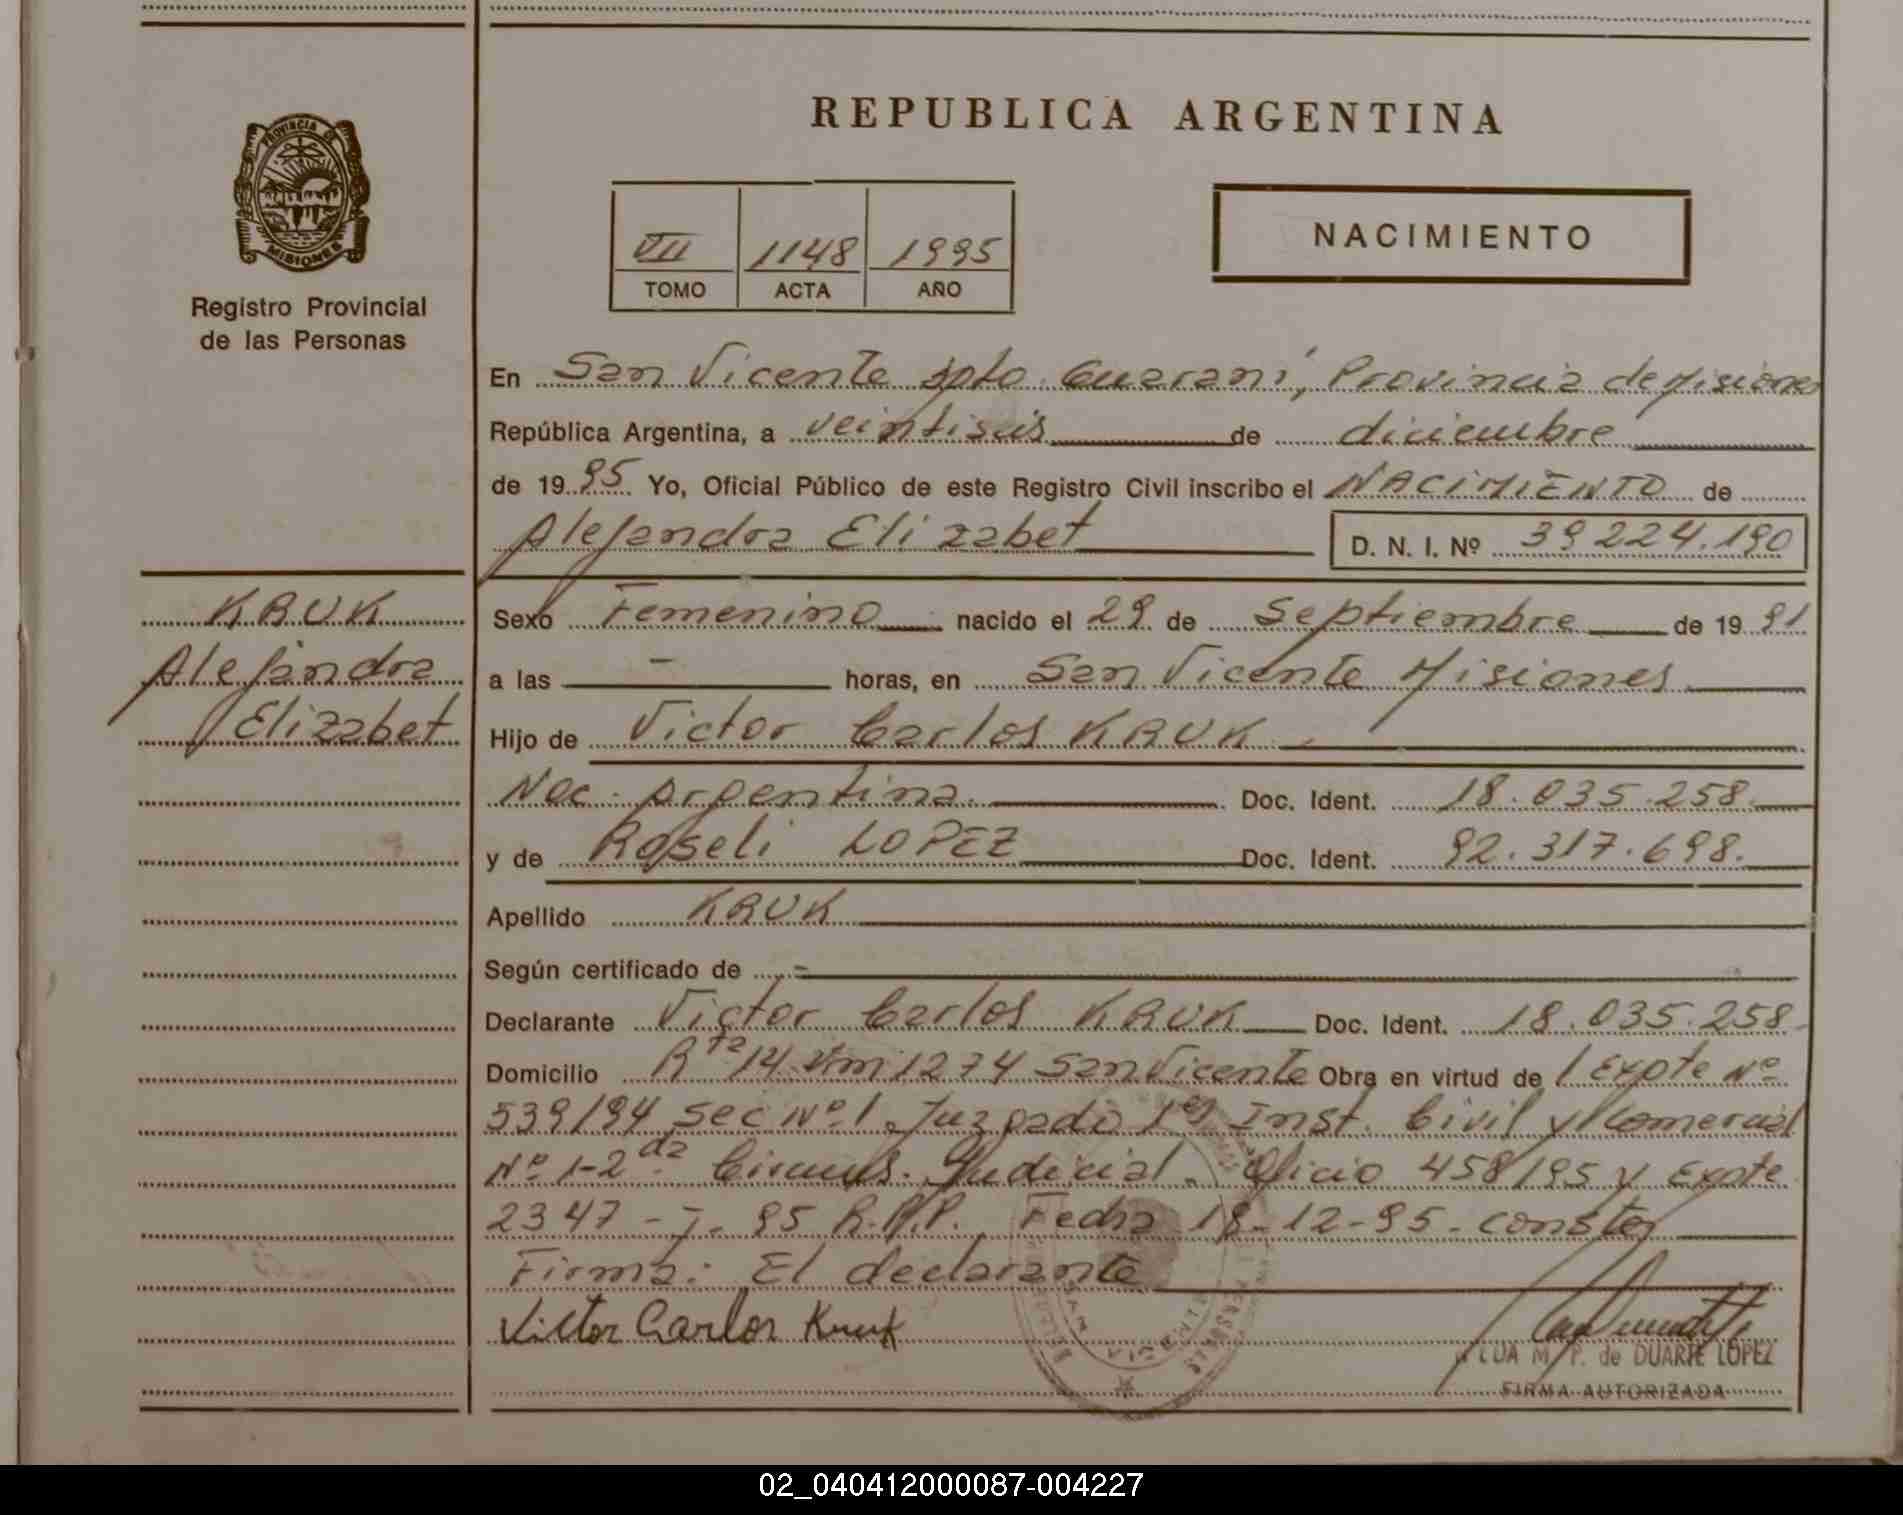 REPUBLICA ARGENTINA
PROVINCIA DE
MISIONES
Registro Provincial
de las Personas
VII 1148 1995
TOMO ACTA AÑO
NACIMIENTO
En San Vicente Dpto. Guaraní, Provincia de Misiones
República Argentina, a veintiseis de diciembre
de 1995 Yo, Oficial Público de este Registro Civil inscribo el NACIMIENTO de
Alejandra Elizabet D. N. I. Nº 39.224.190
KRUK
Alejandra
Elizabet
Sexo Femenino nacido el 29 de Septiembre de 1991
a las - horas, en San Vicente Misiones
Hijo de Victor Carlos KRUK
Nac. Argentina. Doc. Ident. 18.035.258.
y de Roseli LOPEZ Doc. Ident. 92.317.698.
Apellido KRUK
Según certificado de -
Declarante Victor Carlos KRUK Doc. Ident. 18.035.258
Domicilio Rta 14 Km 1274 San Vicente Obra en virtud de / Expte Nº
539/94 Sec Nº 1. Juzgado 1er Inst. Civil y Comercial
Nº 1-2da Circuns. Judicial. Oficio 458/95 y Expte
2347 - J - 95 R.P.P. Fecha 18-12-95. Conste
Firma: El declarante
Victor Carlos Kruk
M. P. de DUARTE LOPEZ
FIRMA AUTORIZADA
02_040412000087-004227